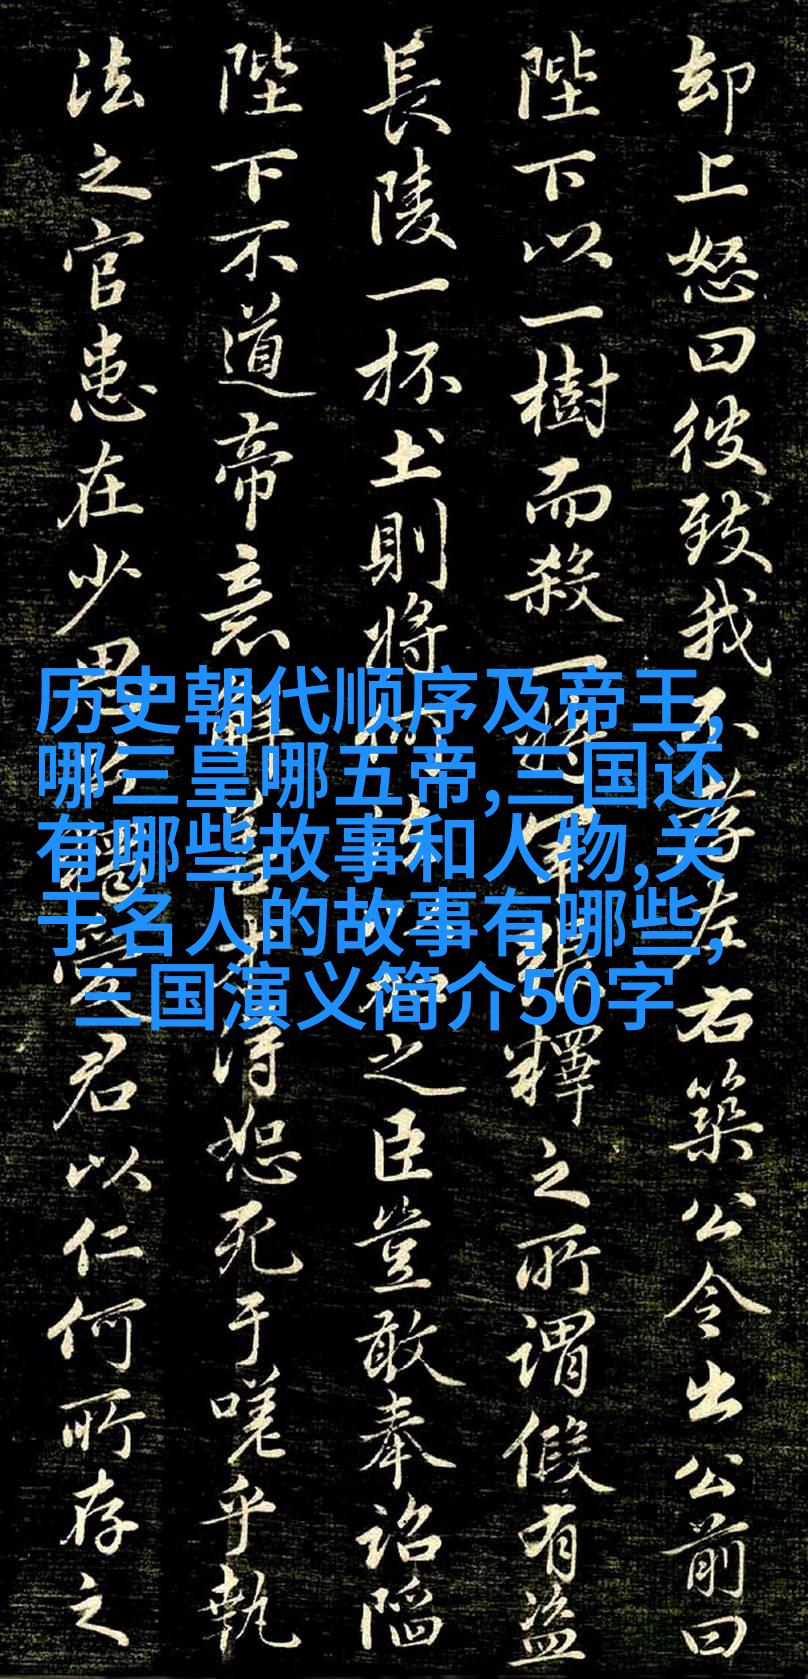 却上怒曰彼致我不存左右築公令出公前曰
陛下以一樹而殺一将軍所釋之所謂假有盗
長陵一抔土則将何法以之臣豈敢奉詔陷
陛下不道帝意得恕死于嗟乎執
法之官患在少恩君以仁何所存之
历史朝代顺序及帝王,
哪三皇哪五帝,三国还
有哪些故事和人物,关
于名人的故事有哪些,
三国演义简介50字